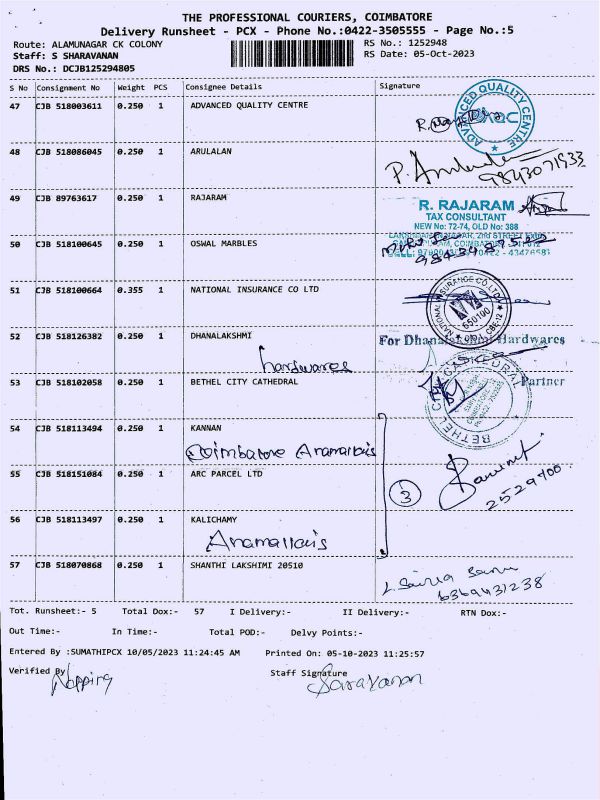 THE PROFESSIONAL COURIERS, COIMBATORE
Delivery Runsheet - PCX - Phone No.:0422-3505555 - Page No.:5
Route: ALAMUNAGAR CK COLONY
RS No.: 1252948
Staff: S SHARAVANAN
RS Date: 05-Oct-2023
DRS No.: DCJB125294805
S No Consignment No Weight PCS Consignee Details Signature
47 CJB 518003611 0.250 1 ADVANCED QUALITY CENTRE
ADVANCED QUALITY CENTRE
48 CJB 518086045 0.250 1 ARULALAN
9843071933
49 CJB 89763617 0.250 1 RAJARAM
R. RAJARAM
TAX CONSULTANT
NEW No: 72-74, OLD No: 388
50 CJB 518100645 0.250 1 OSWAL MARBLES
51 CJB 518100664 0.355 1 NATIONAL INSURANCE CO LTD
NATIONAL INSURANCE CO LTD
650100
CBE-12
52 CJB 518126382 0.250 1 DHANALAKSHMI
hardwares
For Dhanalakshmi Hardwares
Partner
53 CJB 518102058 0.250 1 BETHEL CITY CATHEDRAL
BETHEL CITY CATHEDRAL
54 CJB 518113494 0.250 1 KANNAN
Coimbatore Anamallais
55 CJB 518151084 0.250 1 ARC PARCEL LTD
3
2529700
56 CJB 518113497 0.250 1 KALICHAMY
Anamallais
57 CJB 518070868 0.250 1 SHANTHI LAKSHIMI 20510
6369431238
Tot. Runsheet:- 5 Total Dox:- 57 I Delivery:- II Delivery:- RTN Dox:-
Out Time:- In Time:- Total POD:- Delvy Points:-
Entered By :SUMATHIPCX 10/05/2023 11:24:45 AM Printed On: 05-10-2023 11:25:57
Verified By Staff Signature
Saravanan